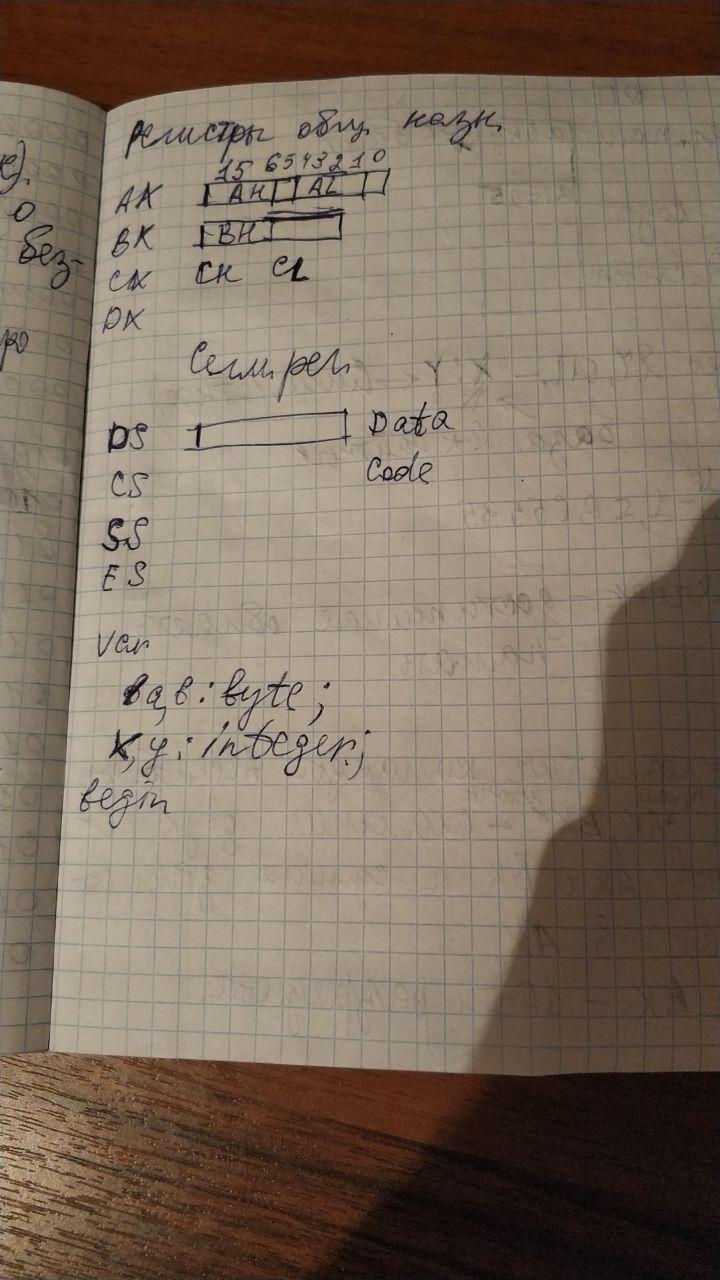 е).
о
без-
ро
Регистры общ. назн.
15 6 5 4 3 2 1 0
AX AH AL
BX BH
CX CH CL
DX
Сегм. рег.
DS Data
CS Code
SS
ES
var
a, b : byte;
x, y : integer;
begin